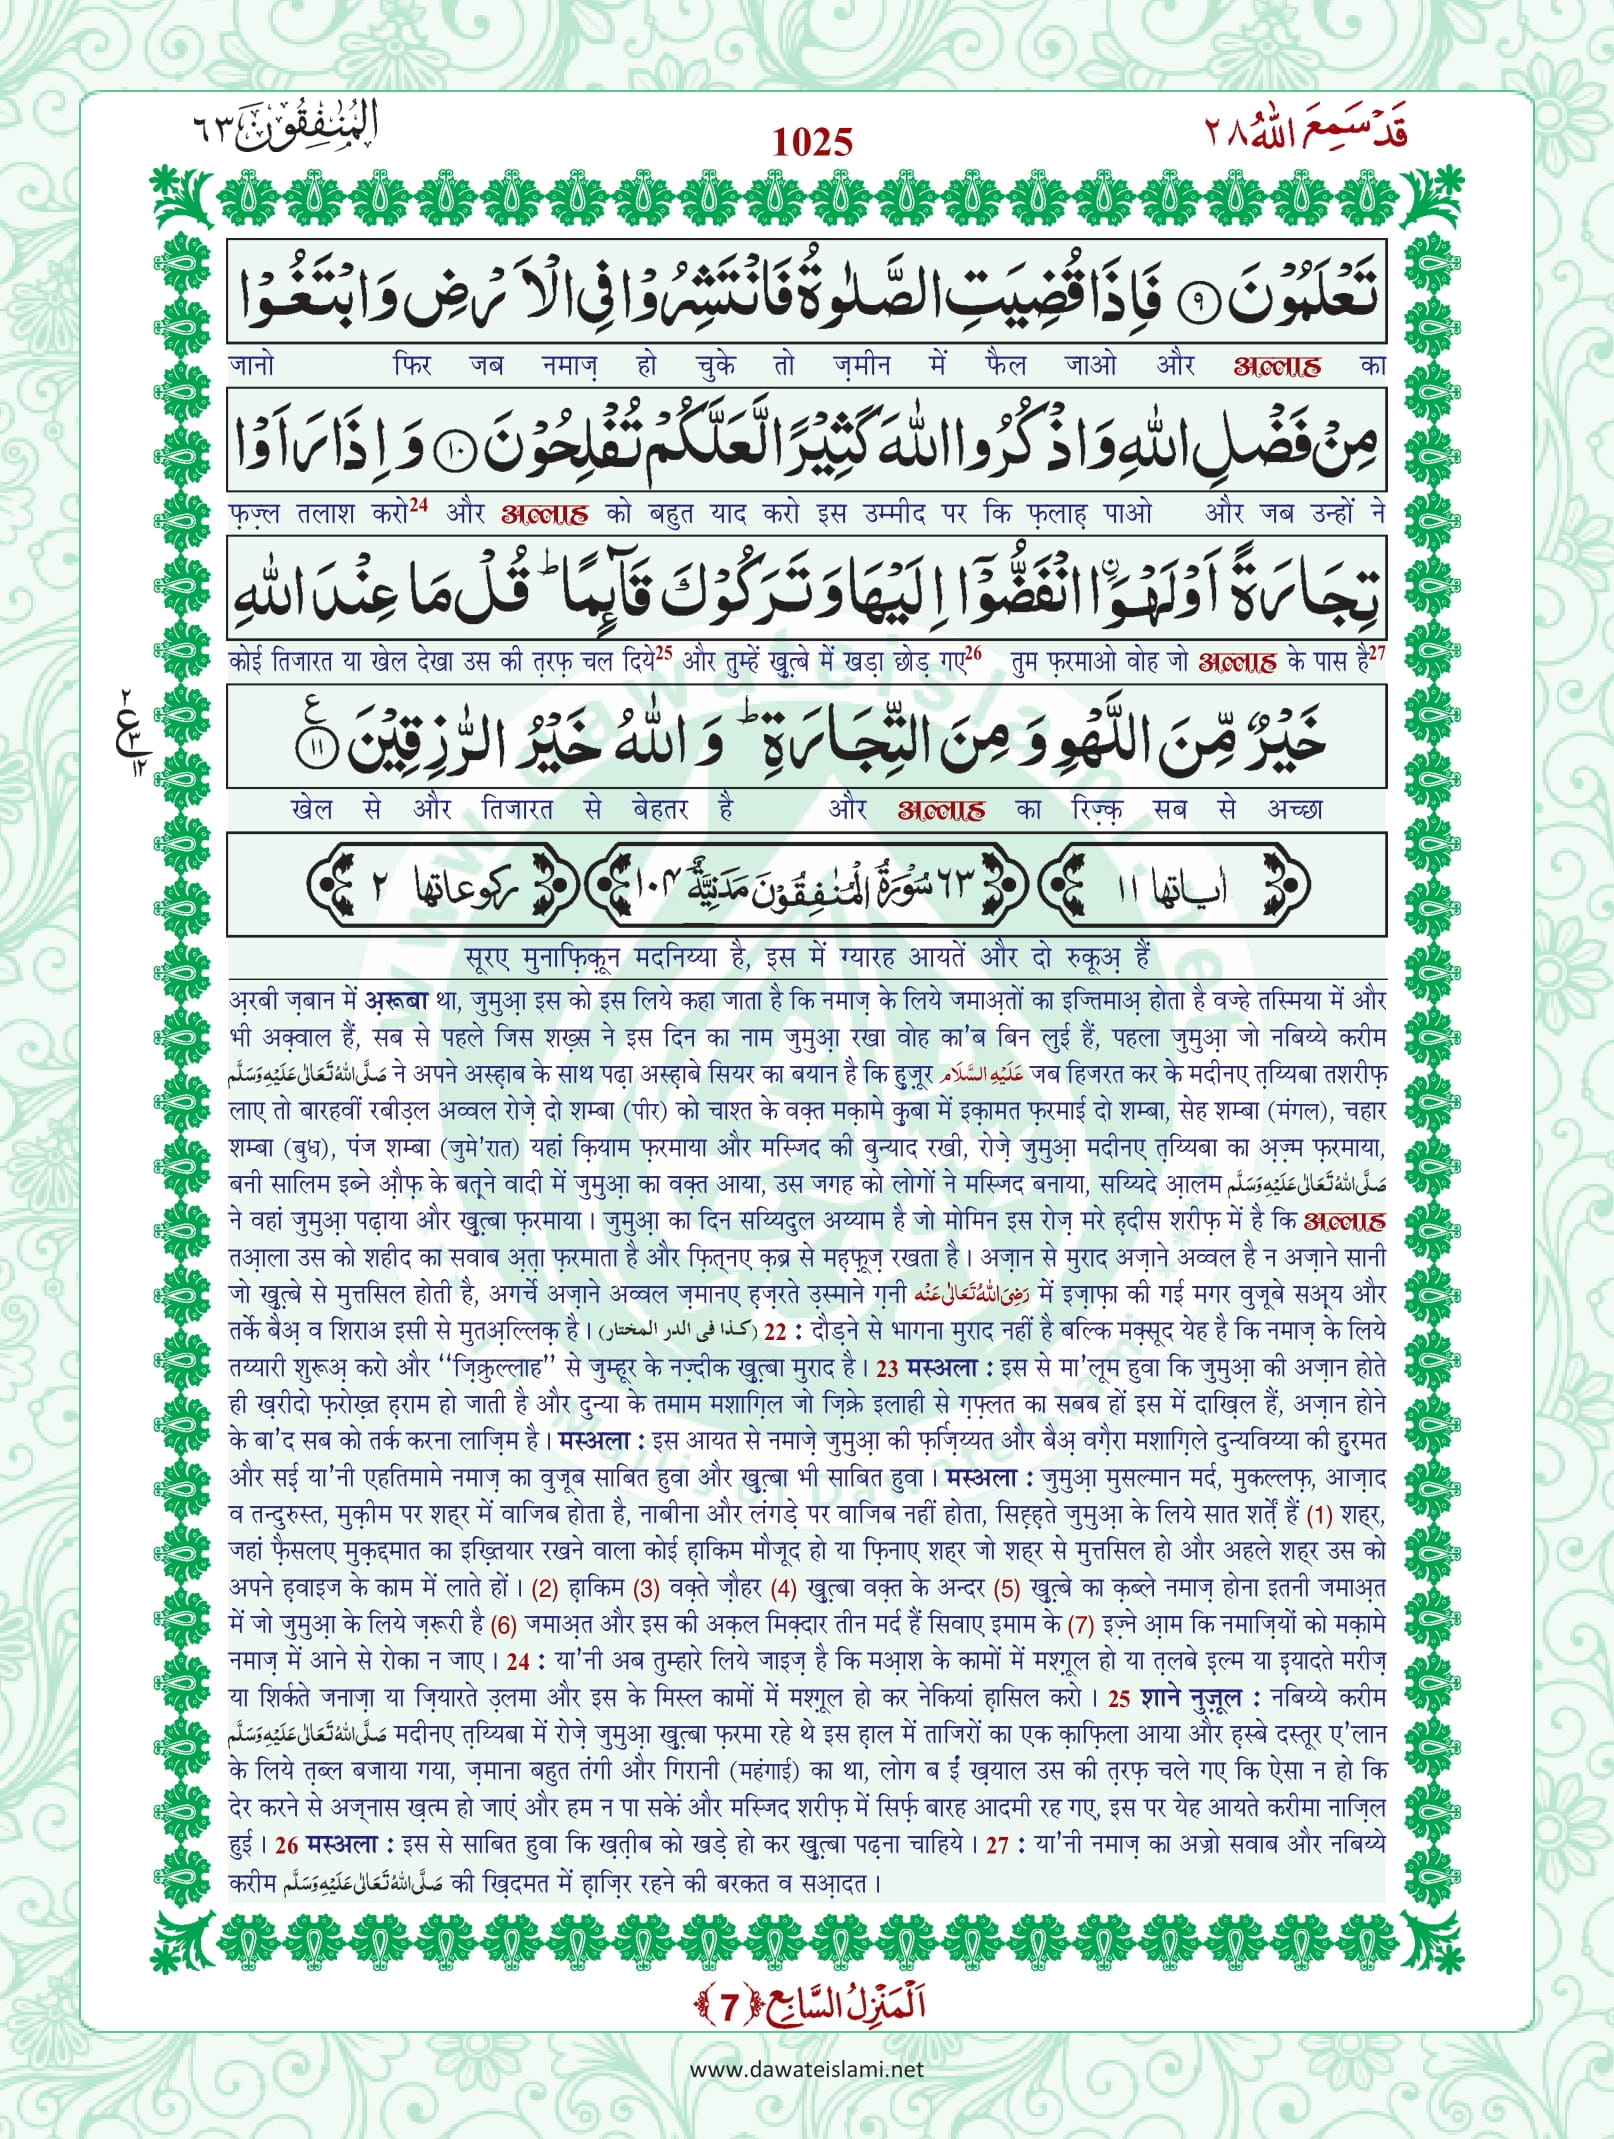 قَدْ سَمِعَ اللّٰهُ ٢٨
1025
الْمُنٰفِقُوْنَ ٦٣
تَعْلَمُوْنَ ﴿٩﴾ فَاِذَا قُضِیَتِ الصَّلٰوةُ فَانْتَشِرُوْا فِی الْاَرْضِ وَ ابْتَغُوْا
जानो फिर जब नमाज़ हो चुके तो ज़मीन में फैल जाओ और अल्लाह का
مِنْ فَضْلِ اللّٰهِ وَ اذْكُرُوا اللّٰهَ كَثِیْرًا لَّعَلَّكُمْ تُفْلِحُوْنَ ﴿١٠﴾ وَ اِذَا رَاَوْا
फ़ज़्ल तलाश करो24 और अल्लाह को बहुत याद करो इस उम्मीद पर कि फ़लाह़ पाओ और जब उन्हों ने
تِجَارَةً اَوْ لَهْوَا ۟ انْفَضُّوْۤا اِلَیْهَا وَ تَرَكُوْكَ قَآىٕمًا ؕ قُلْ مَا عِنْدَ اللّٰهِ
कोई तिजारत या खेल देखा उस की त़रफ़ चल दिये25 और तुम्हें ख़ुत़्बे में खड़ा छोड़ गए26 तुम फ़रमाओ वोह जो अल्लाह के पास है27
خَیْرٌ مِّنَ اللَّهْوِ وَ مِنَ التِّجَارَةِ ؕ وَ اللّٰهُ خَیْرُ الرّٰزِقِیْنَ ﴿١١﴾ ع
٢ ع ٣ ١٢
खेल से और तिजारत से बेहतर है और अल्लाह का रिज़्क़ सब से अच्छा
اٰیاتها ١١ ٦٣ سُوْرَةُ الْمُنٰفِقُوْنَ مَدَنِیَّةٌ ١٠٤ رکوعاتها ٢
सूरए मुनाफ़िक़ून मदनिय्या है, इस में ग्यारह आयतें और दो रुकूअ़ हैं
अ़रबी ज़बान में अ़रूबा था, जुमुआ़ इस को इस लिये कहा जाता है कि नमाज़ के लिये जमाअ़तों का इज्तिमाअ़ होता है वज्हे तस्मिया में और
भी अक़्वाल हैं, सब से पहले जिस शख़्स ने इस दिन का नाम जुमुआ़ रखा वोह का'ब बिन लुई हैं, पहला जुमुआ़ जो नबिय्ये करीम
صَلَّى اللّٰهُ تَعَالٰى عَلَيْهِ وَسَلَّم ने अपने अस्ह़ाब के साथ पढ़ा अस्ह़ाबे सियर का बयान है कि हुज़ूर عَلَيْهِ السَّلَام जब हिजरत कर के मदीनए त़य्यिबा तशरीफ़
लाए तो बारहवीं रबीउ़ल अव्वल रोज़े दो शम्बा (पीर) को चाश्त के वक़्त मक़ामे क़ुबा में इक़ामत फ़रमाई दो शम्बा, सेह शम्बा (मंगल), चहार
शम्बा (बुध), पंज शम्बा (जुमे'रात) यहां क़ियाम फ़रमाया और मस्जिद की बुन्याद रखी, रोज़े जुमुआ़ मदीनए त़य्यिबा का अ़ज़्म फ़रमाया,
बनी सालिम इब्ने औ़फ़ के बत़्ने वादी में जुमुआ़ का वक़्त आया, उस जगह को लोगों ने मस्जिद बनाया, सय्यिदे आ़लम صَلَّى اللّٰهُ تَعَالٰى عَلَيْهِ وَسَلَّم
ने वहां जुमुआ़ पढ़ाया और ख़ुत़्बा फ़रमाया। जुमुआ़ का दिन सय्यिदुल अय्याम है जो मोमिन इस रोज़ मरे ह़दीस शरीफ़ में है कि अल्लाह
तआ़ला उस को शहीद का सवाब अ़त़ा फ़रमाता है और फ़ित्नए क़ब्र से मह़फ़ूज़ रखता है। अज़ान से मुराद अज़ाने अव्वल है न अज़ाने सानी
जो ख़ुत़्बे से मुत्तसिल होती है, अगर्चे अज़ाने अव्वल ज़मानए ह़ज़रते उ़स्माने ग़नी رَضِىَ اللّٰهُ تَعَالٰى عَنْه में इज़ाफ़ा की गई मगर वुजूबे सअ़्य और
तर्के बैअ़ व शिराअ इसी से मुतअ़ल्लिक़ है। (كذا فى الدر المختار) 22 : दौड़ने से भागना मुराद नहीं है बल्कि मक़्सूद येह है कि नमाज़ के लिये
तय्यारी शुरूअ़ करो और ‘‘ज़िक्रुल्लाह’’ से जुम्हूर के नज़्दीक ख़ुत़्बा मुराद है। 23 मस्अला : इस से मा'लूम हुवा कि जुमुआ़ की अज़ान होते
ही ख़रीदो फ़रोख़्त ह़राम हो जाती है और दुन्या के तमाम मशाग़िल जो ज़िक्रे इलाही से ग़फ़्लत का सबब हों इस में दाख़िल हैं, अज़ान होने
के बा'द सब को तर्क करना लाज़िम है। मस्अला : इस आयत से नमाज़े जुमुआ़ की फ़र्ज़िय्यत और बैअ़ वग़ैरा मशाग़िले दुन्यविय्या की ह़ुरमत
और सई या'नी एहतिमामे नमाज़ का वुजूब साबित हुवा और ख़ुत़्बा भी साबित हुवा। मस्अला : जुमुआ़ मुसल्मान मर्द, मुकल्लफ़, आज़ाद
व तन्दुरुस्त, मुक़ीम पर शह्र में वाजिब होता है, नाबीना और लंगड़े पर वाजिब नहीं होता, सिह़्ह़ते जुमुआ़ के लिये सात शर्त़ें हैं (1) शह्र,
जहां फ़ैसलए मुक़द्दमात का इख़्तियार रखने वाला कोई ह़ाकिम मौजूद हो या फ़िनाए शह्र जो शह्र से मुत्तसिल हो और अहले शह्र उस को
अपने ह़वाइज के काम में लाते हों। (2) ह़ाकिम (3) वक़्ते ज़ौहर (4) ख़ुत़्बा वक़्त के अन्दर (5) ख़ुत़्बे का क़ब्ले नमाज़ होना इतनी जमाअ़त
में जो जुमुआ़ के लिये ज़रूरी है (6) जमाअ़त और इस की अक़ल मिक़्दार तीन मर्द हैं सिवाए इमाम के (7) इज़्ने आ़म कि नमाज़ियों को मक़ामे
नमाज़ में आने से रोका न जाए। 24 : या'नी अब तुम्हारे लिये जाइज़ है कि मआ़श के कामों में मश्ग़ूल हो या त़लबे इल्म या इयादते मरीज़
या शिर्कते जनाज़ा या ज़ियारते उ़लमा और इस के मिस्ल कामों में मश्ग़ूल हो कर नेकियां ह़ासिल करो। 25 शाने नुज़ूल : नबिय्ये करीम
صَلَّى اللّٰهُ تَعَالٰى عَلَيْهِ وَسَلَّم मदीनए त़य्यिबा में रोज़े जुमुआ़ ख़ुत़्बा फ़रमा रहे थे इस ह़ाल में ताजिरों का एक क़ाफ़िला आया और ह़स्बे दस्तूर ए'लान
के लिये त़ब्ल बजाया गया, ज़माना बहुत तंगी और गिरानी (महंगाई) का था, लोग ब ईं ख़याल उस की त़रफ़ चले गए कि ऐसा न हो कि
देर करने से अज्नास ख़त्म हो जाएं और हम न पा सकें और मस्जिद शरीफ़ में सिर्फ़ बारह आदमी रह गए, इस पर येह आयते करीमा नाज़िल
हुई। 26 मस्अला : इस से साबित हुवा कि ख़त़ीब को खड़े हो कर ख़ुत़्बा पढ़ना चाहिये। 27 : या'नी नमाज़ का अज्रो सवाब और नबिय्ये
करीम صَلَّى اللّٰهُ تَعَالٰى عَلَيْهِ وَسَلَّم की ख़िदमत में ह़ाज़िर रहने की बरकत व सआ़दत।
اَلْمَنْزِلُ السَّابِع ﴿7﴾
www.dawateislami.net